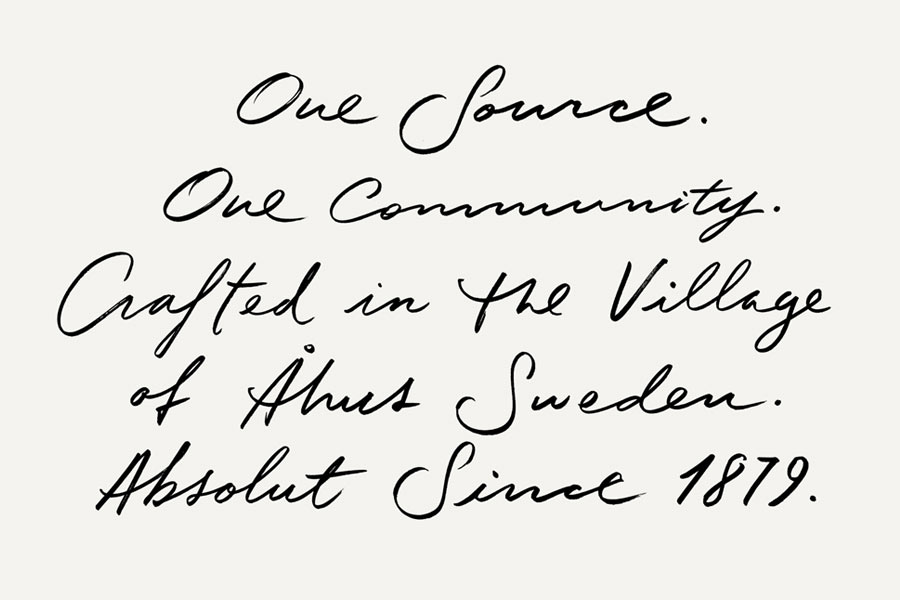 One Source.
One Community.
Crafted in the Village
of Åhus Sweden.
Absolut Since 1879.